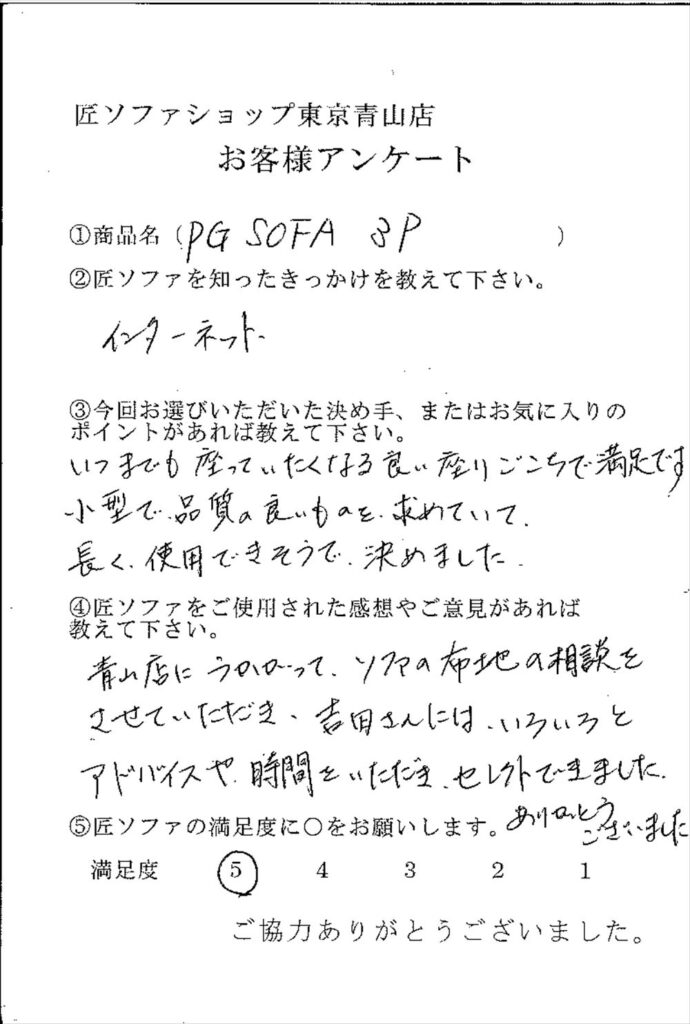 匠ソファショップ東京青山店
お客様アンケート
①商品名（PG SOFA 3P ）
②匠ソファを知ったきっかけを教えて下さい。
インターネット.
③今回お選びいただいた決め手、またはお気に入りの
ポイントがあれば教えて下さい。
いつまでも座っていたくなる良い座りごこちで満足です
小型で、品質の良いものを、求めていて、
長く、使用できそうで、決めました.
④匠ソファをご使用された感想やご意見があれば
教えて下さい。
青山店にうかがって、ソファの布地の相談を
させていただき、吉田さんには、いろいろと
アドバイスや、時間をいただき、セレクトできました.
⑤匠ソファの満足度に○をお願いします。
ありがとう
ございました
満足度 5 4 3 2 1
ご協力ありがとうございました。